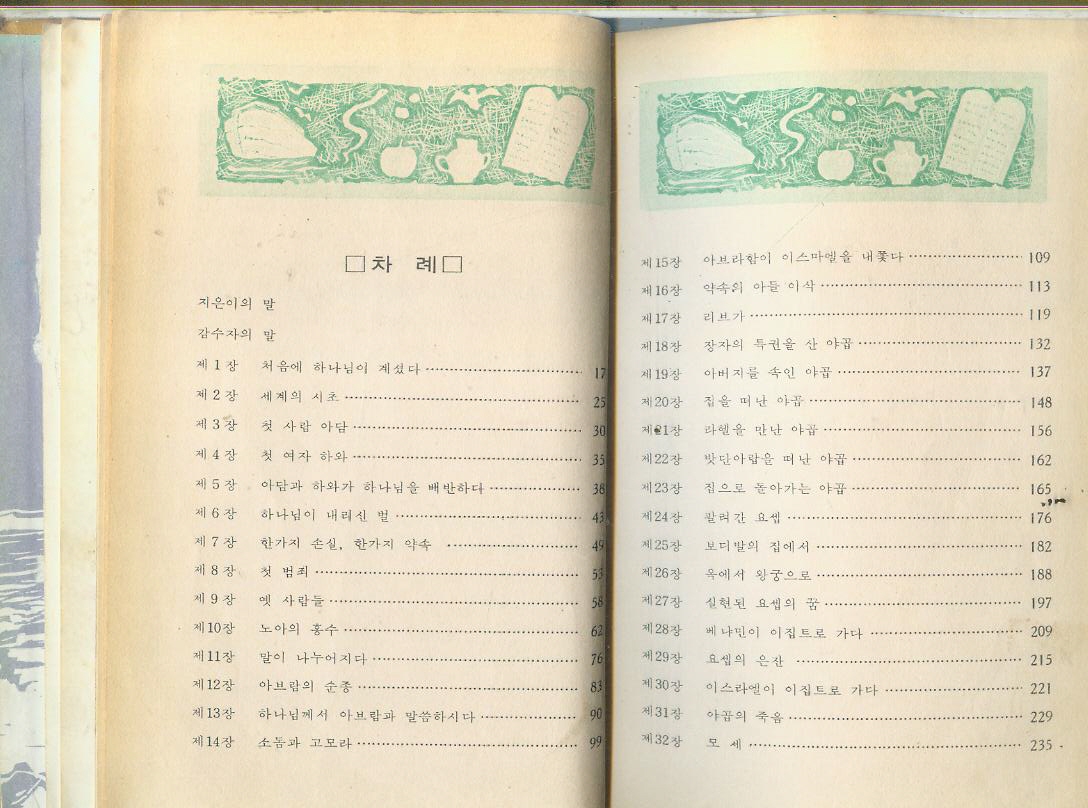 □차 례□
지은이의 말
감수자의 말
제 1 장 처음에 하나님이 계셨다 ⋯⋯ 17
제 2 장 세계의 시초 ⋯⋯ 25
제 3 장 첫 사람 아담 ⋯⋯ 30
제 4 장 첫 여자 하와 ⋯⋯ 35
제 5 장 아담과 하와가 하나님을 배반하다 ⋯⋯ 38
제 6 장 하나님이 내리신 벌 ⋯⋯ 43
제 7 장 한가지 손실, 한가지 약속 ⋯⋯ 49
제 8 장 첫 범죄 ⋯⋯ 53
제 9 장 옛 사람들 ⋯⋯ 58
제10장 노아의 홍수 ⋯⋯ 62
제11장 말이 나누어지다 ⋯⋯ 76
제12장 아브람의 순종 ⋯⋯ 83
제13장 하나님께서 아브람과 말씀하시다 ⋯⋯ 90
제14장 소돔과 고모라 ⋯⋯ 99
제15장 아브라함이 이스마엘을 내쫓다 ⋯⋯ 109
제16장 약속의 아들 이삭 ⋯⋯ 113
제17장 리브가 ⋯⋯ 119
제18장 장자의 특권을 산 야곱 ⋯⋯ 132
제19장 아버지를 속인 야곱 ⋯⋯ 137
제20장 집을 떠난 야곱 ⋯⋯ 148
제21장 라헬을 만난 야곱 ⋯⋯ 156
제22장 밧단아람을 떠난 야곱 ⋯⋯ 162
제23장 집으로 돌아가는 야곱 ⋯⋯ 165
제24장 팔려간 요셉 ⋯⋯ 176
제25장 보디발의 집에서 ⋯⋯ 182
제26장 옥에서 왕궁으로 ⋯⋯ 188
제27장 실현된 요셉의 꿈 ⋯⋯ 197
제28장 베냐민이 이집트로 가다 ⋯⋯ 209
제29장 요셉의 은잔 ⋯⋯ 215
제30장 이스라엘이 이집트로 가다 ⋯⋯ 221
제31장 야곱의 죽음 ⋯⋯ 229
제32장 모 세 ⋯⋯ 235